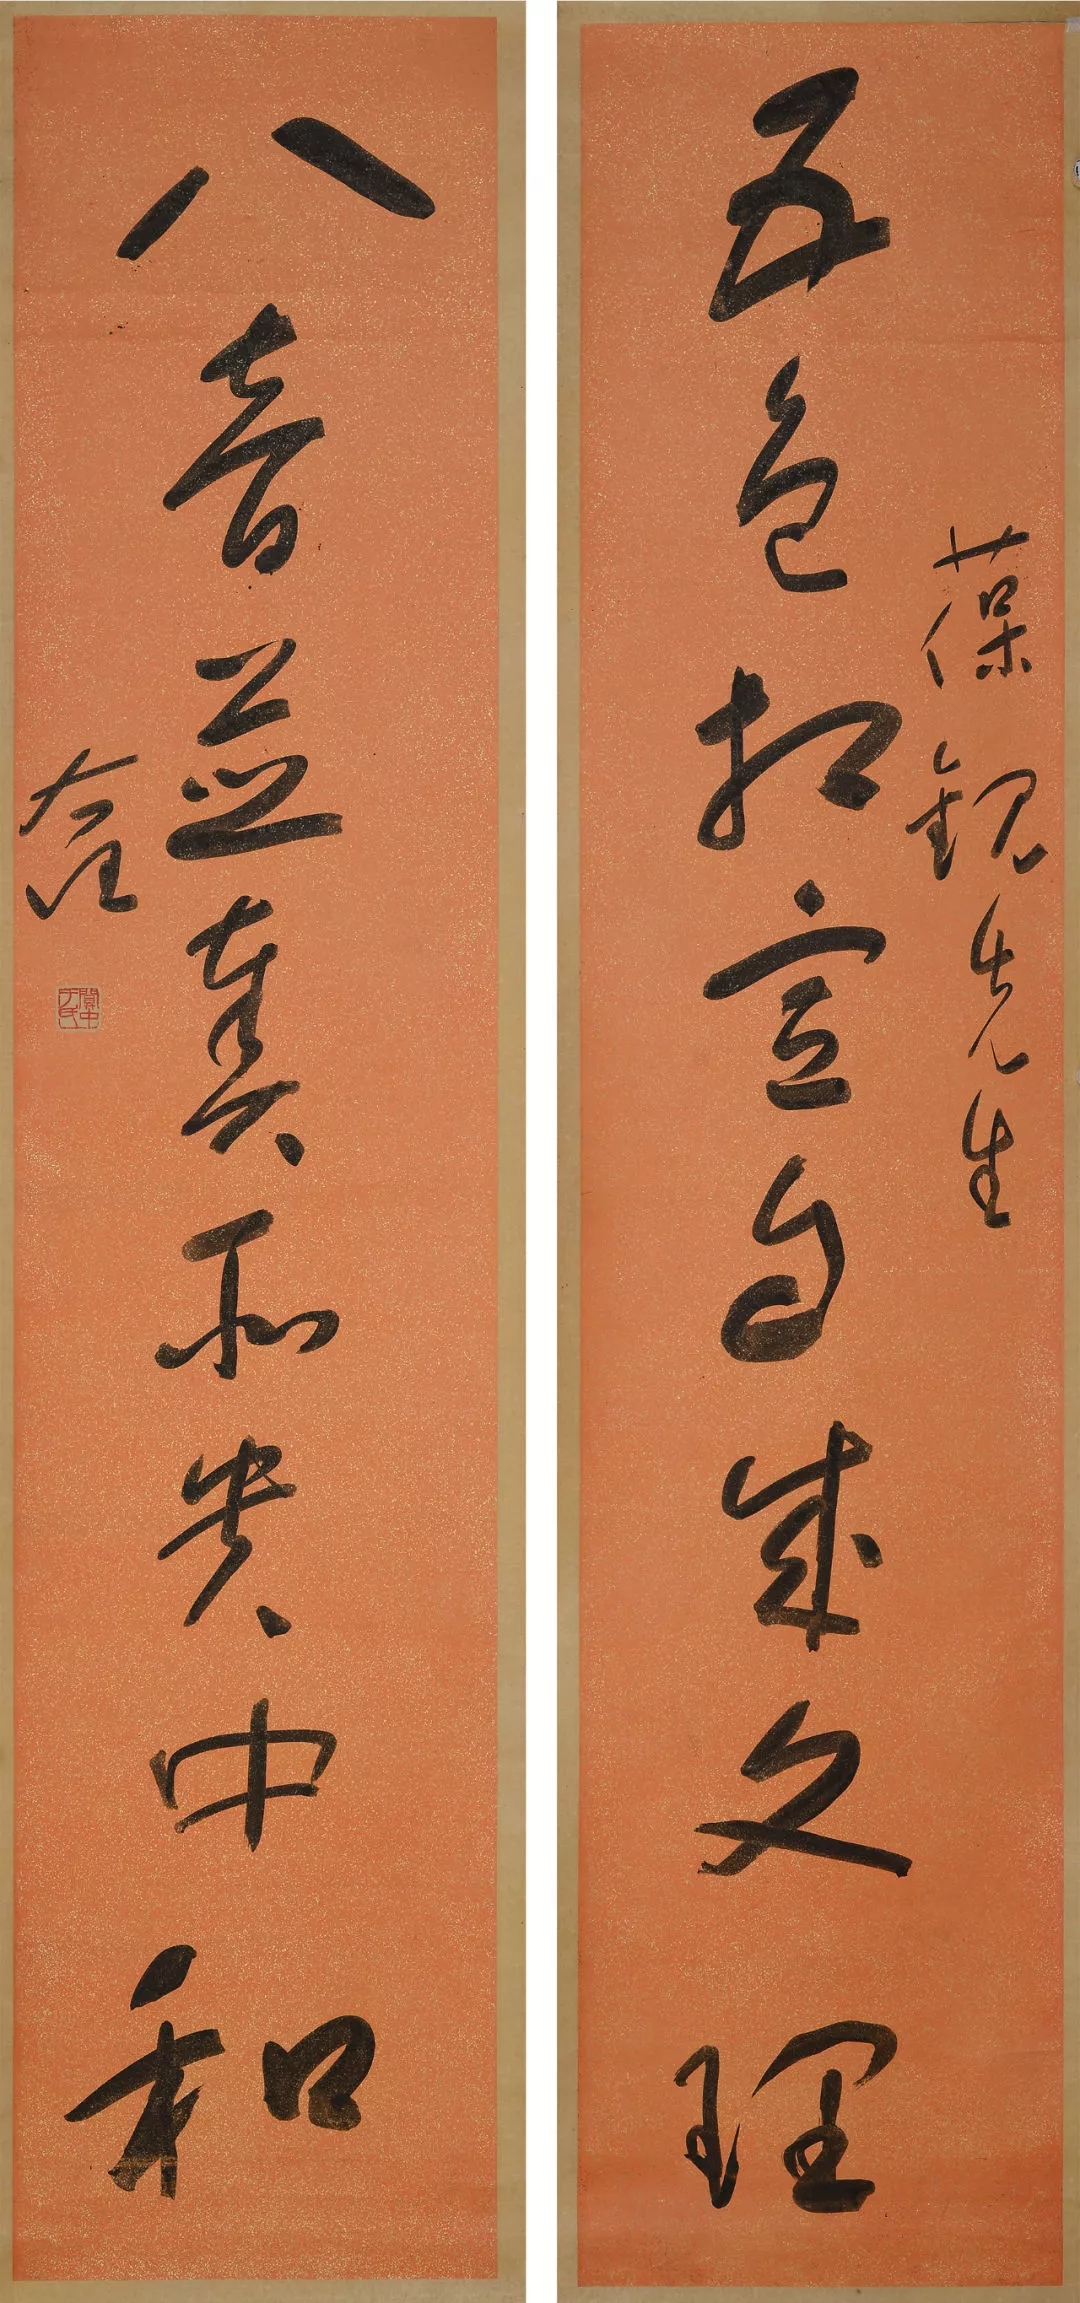 五色相宣自成文理
葆 先生
八音並奏所貴中和
右任
關中于氏